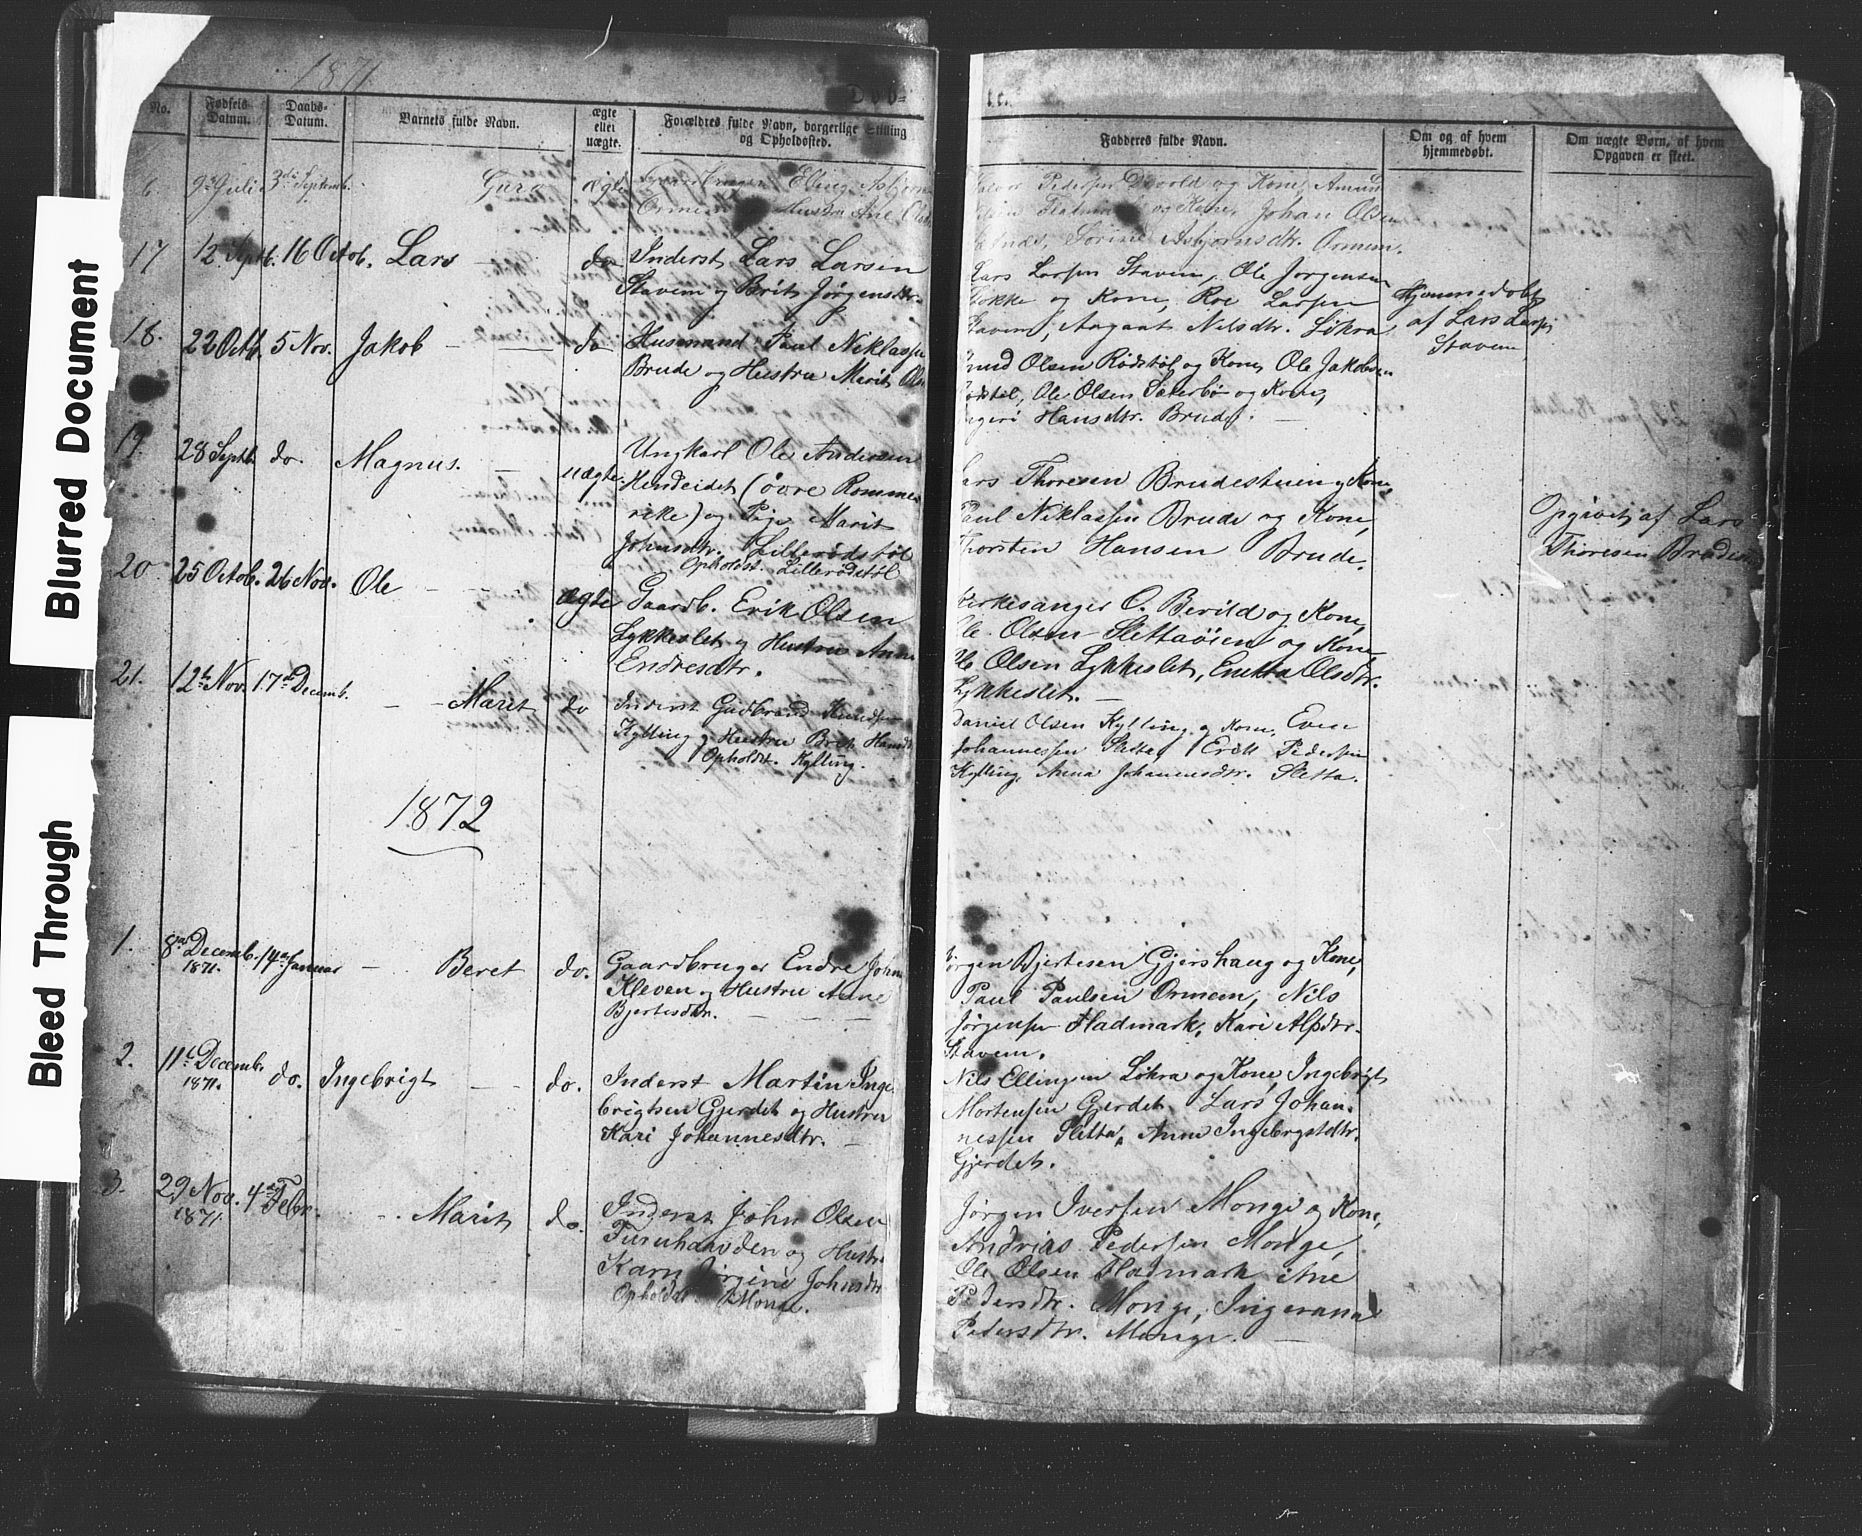 Blurred Document
Bleed Through
1871
Døb-
te.
No.
Fødsels Datum.
Daabs-Datum.
Barnets fulde Navn.
ægte eller uægte.
Forældres fulde Navn, borgerlige Stilling og Opholdssted.
Fadderes fulde Navn.
Om og af hvem hjemmedøbt.
Om uægte Børn, af hvem Opgaven er skeet.
6. 9de Juli 3die Septemb. Guro ægte
Hustru Ane
Pedersen Devold og Kone, Amund
og Kone, Johan Olsen
Sorine Asbjørnsdtr. Ormem.
17 12 Septb. 16 Octob. Lars do
Inderst Lars Larsen
Stavem og Brit Jørgensdtr.
Lars Larsen Stavem, Ole Jørgensen
Løkke og Kone, Roe Larsen
Stavem, Aagaat Nilsdtr. Løkra
Hjemmedøbt
af Lars Larsen
Stavem
18. 22 Octb. 5 Nov. Jakob do
Husmand Paul Niklassen
Brude og Hustru Marit Ols
Knud Olsen Rødstøl og Kone, Ole Jakobsen
Rødstøl, Ole Olsen Sæterbø og Kone,
Ingeri Hansdtr. Brude.
19. 28 Septb. do. Magnus. uægte.
Ungkarl Ole Andersen
Hendeidet (øvre Romme-
rike) og Pige Marit
Johnsdtr. Lillerødstøl
Opholdst. Lillerødstøl
Lars Thoresen Brudestuen og Kone,
Paul Niklassen Brude og Kone,
Thorsten Hansen Brude.
Opgivet af Lars
Thoresen Brudestu
20 25 Octob. 26 Nov. Ole ægte
Gaardb. Erik Olsen
Lykkeslet og Hustru Anne
Endresdtr.
Kirkesanger O. Berild og Kone,
Ole Olsen Slettaøien og Kone
Ole Olsen Lykkeslet, Olsdtr.
Lykkeslet.
21. 12te Nov. 17de Decemb. Marit do
Inderst Gudbrand Knudsen
Kylling og Hustru Brit Hansdtr
Opholdst. Kylling.
Daniel Olsen Kylling og Kone, Even
Johannessen Sletta, Erik Pedersen
Kylling, Anna Johannesdtr. Sletta.
1872
1. 8de Decemb. 1871. 14de Januar Beret do.
Gaardbruger Endre Johns
Kleven og Hustru Anne
Bjertesdtr.
Jørgen Bjertesen Gjershaug og Kone,
Paul Paulsen Ormem, Nils
Jørgensen Fladmark, Kari Alfsdtr.
Stavem.
2. 11te Decemb. 1871. do. Ingebrigt do.
Inderst Martin Inge-
brigtsen Gjerdet og Hustru
Kari Johannesdtr.
Nils Ellingsen Løkra og Kone, Ingebrigt
Mortensen Gjerdet, Lars Johan-
nessen Sletta, Anne Ingebrigtsdtr.
Gjerdet.
3. 29 Nov. 1871. 4de Febr. Marit do.
Inderst John Olsen
Furuhaugen og Hustru
Karn Jørgine Johnsdtr
Opholdst. Monge.
Jørgen Iversen Monge og Kone,
Andreas Pedersen Monge,
Ole Olsen Fladmark, Ane
Pedersdtr. Monge, Ingeranna
Pedersdtr. Monge.